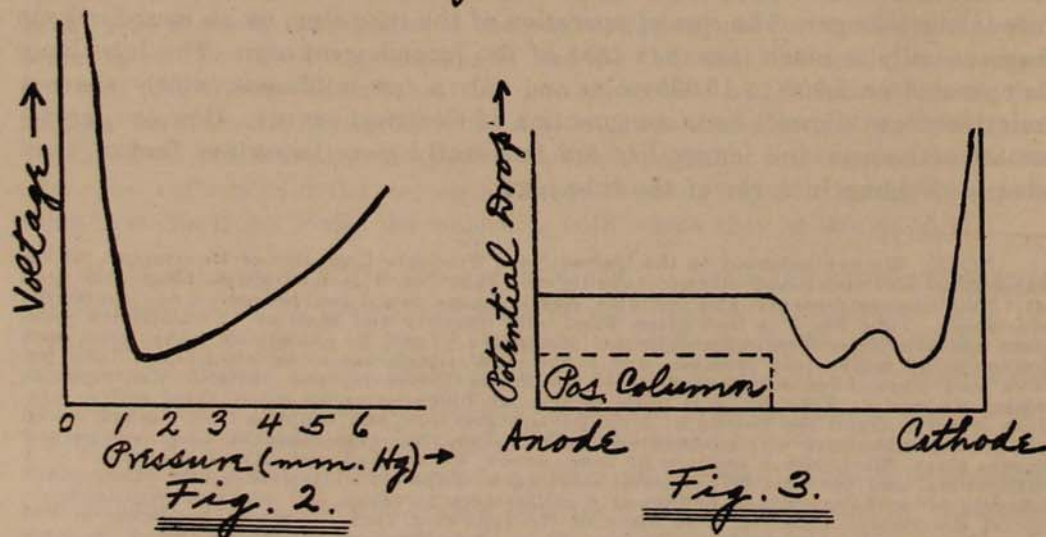 Voltage →
0 1 2 3 4 5 6
Pressure (mm. Hg) →
Fig. 2.
Potential Drop →
Pos. Column
Anode
Cathode
Fig. 3.